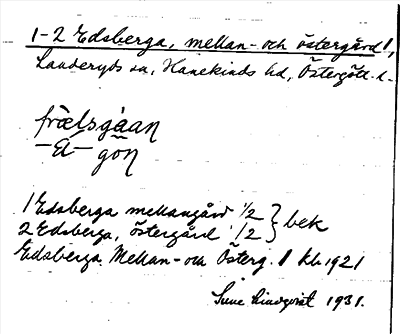 1-2 Edsberga, mellan- och östergård 1,
Landeryds sn, Hanekinds hd, Östergötl. l.
frælsgåan
-Æ- gōn
1 Edsberga mellangård 1/2 } bek
2 Edsberga, östergård 1/2
Edsberga Mellan- och Österg. 1 kb 1921
Sune Lindqvist 1931.